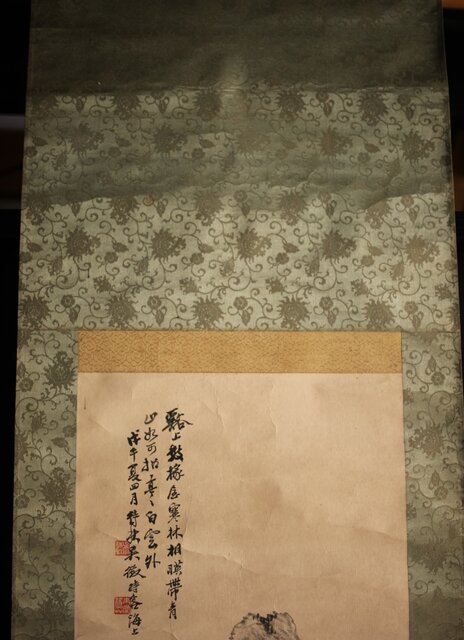 谿上數椽屋寒林相映帶有
山如可招亭亭白雲外
戊午夏四月待秋吳徵時客海上